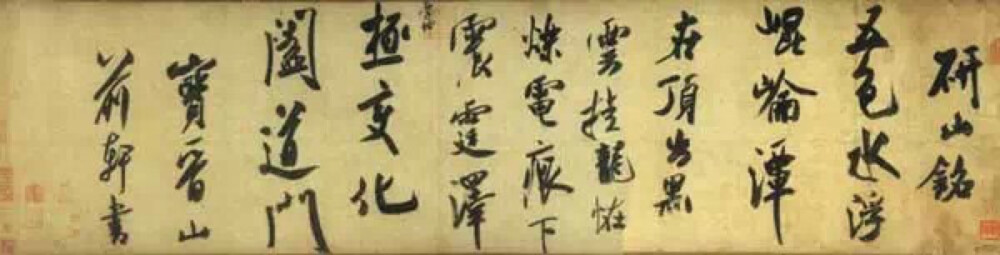 研山銘
五色水浮
崐崘潭
在頂出黑
雲挂龍怪
爍電痕下
震霆澤
極變化
闔道門
寶晉山
前軒書